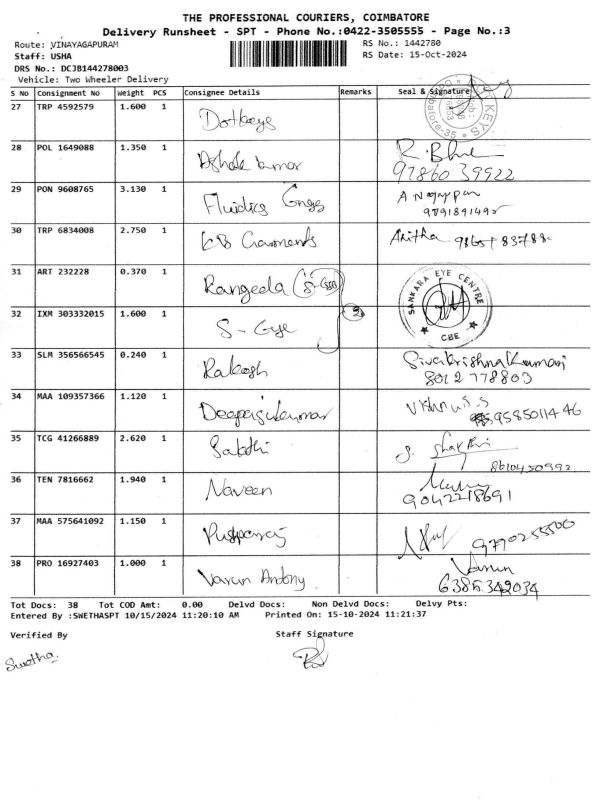 THE PROFESSIONAL COURIERS, COIMBATORE
Delivery Runsheet - SPT - Phone No.:0422-3505555 - Page No.:3
Route: VINAYAGAPURAM RS No.: 1442780
Staff: USHA RS Date: 15-Oct-2024
DRS No.: DCJB144278003
Vehicle: Two Wheeler Delivery
S No Consignment No Weight PCS Consignee Details Remarks Seal & Signature
27 TRP 4592579 1.600 1 Dotkeys KEYS
28 POL 1649088 1.350 1
97860 39922
29 PON 9608765 3.130 1 Fluidics Enggs A Nagappan
9891891495
30 TRP 6834008 2.750 1 Garments Anitha
31 ART 232228 0.370 1 Rangeela SANKARA EYE CENTRE CBE
32 IXM 303332015 1.600 1 S-Eye 2
33 SLM 356566545 0.240 1 Rakesh Sivakrishna Kumari
8012 778803
34 MAA 109357366 1.120 1 Vishnu S.S
9585011446
35 TCG 41266889 2.620 1 Sakthi S. Shakthi
8610450992
36 TEN 7816662 1.940 1 Naveen
9042218691
37 MAA 575641092 1.150 1 Pushparaj 9790255500
38 PRO 16927403 1.000 1 Varun Antony Varun
6385342034
Tot Docs: 38 Tot COD Amt: 0.00 Delvd Docs: Non Delvd Docs: Delvy Pts:
Entered By :SWETHASPT 10/15/2024 11:20:10 AM Printed On: 15-10-2024 11:21:37
Verified By Staff Signature
Swetha.